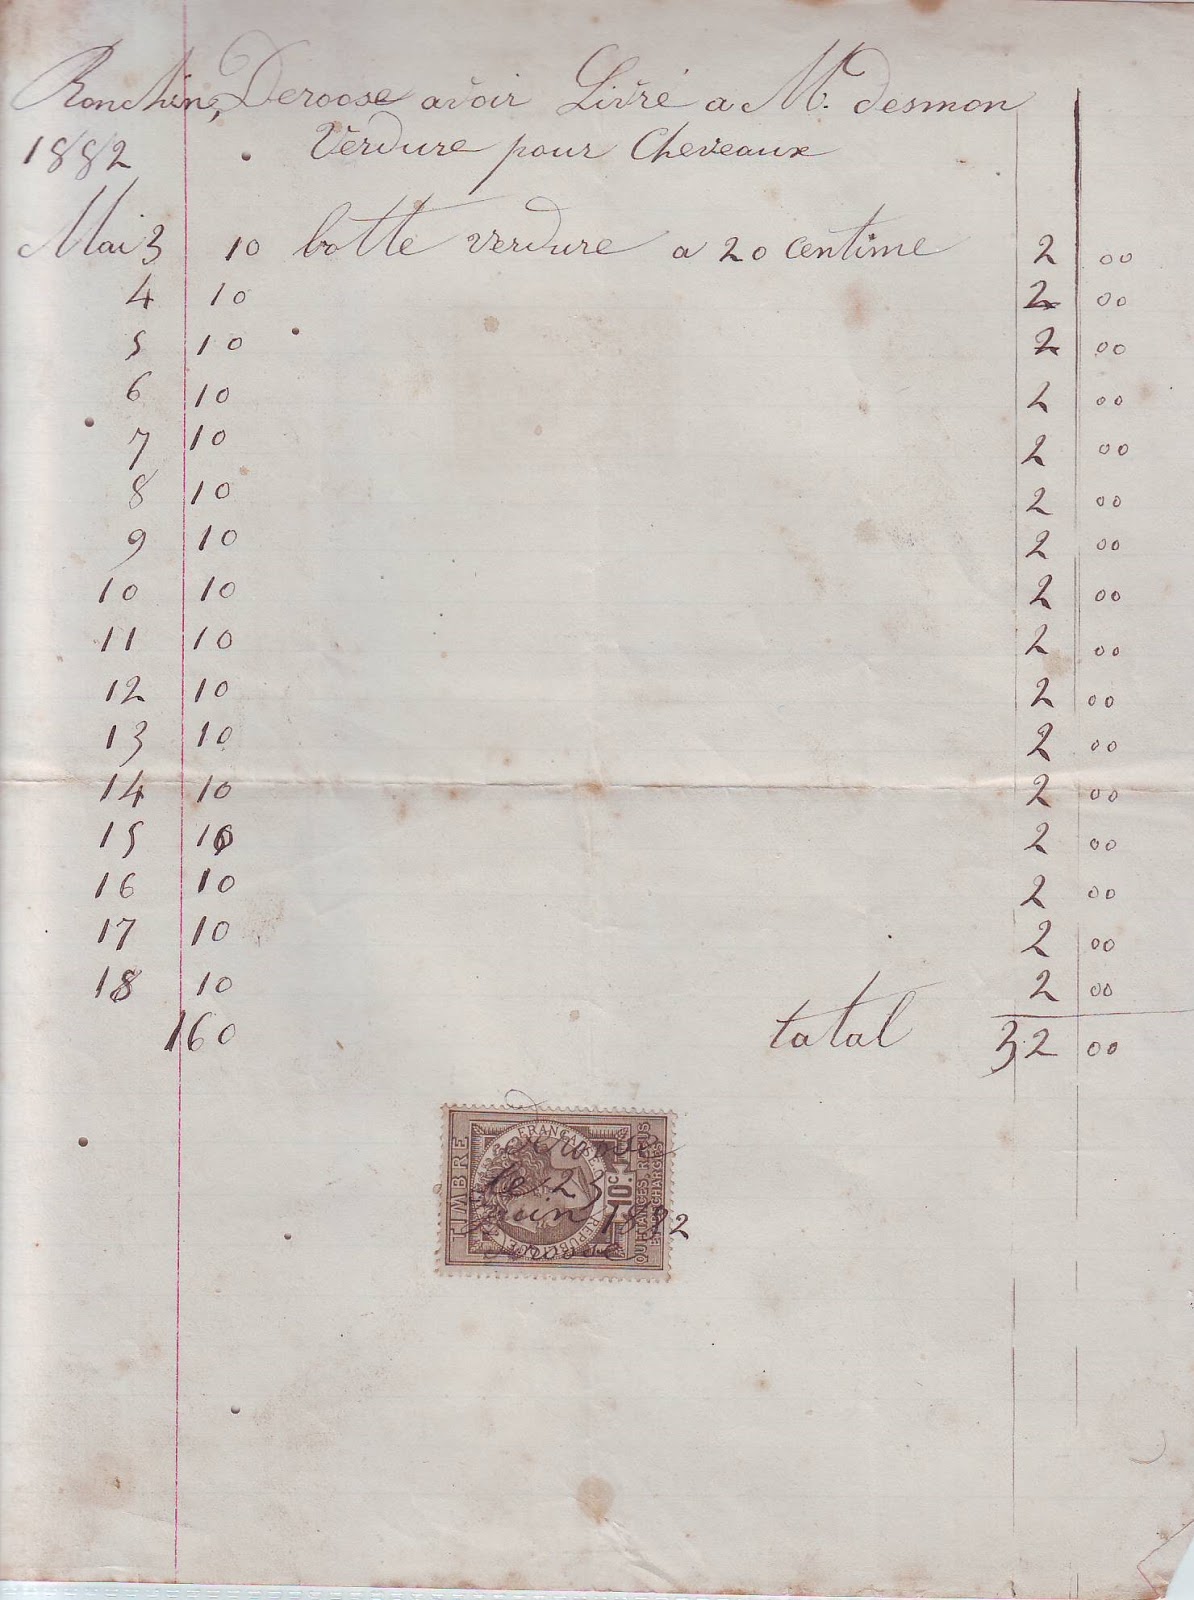 Ronchin, Deroose avoir Livré a Mr. desmon
1882 Verdure pour Cheveaux
Mai 3 10 botte verdure a 20 centime 2 00
4 10 2 00
5 10 2 00
6 10 2 00
7 10 2 00
8 10 2 00
9 10 2 00
10 10 2 00
11 10 2 00
12 10 2 00
13 10 2 00
14 10 2 00
15 10 2 00
16 10 2 00
17 10 2 00
18 10 2 00
160 tatal 32 00
TIMBRE
RÉPUBLIQUE FRANÇAISE
10c.
QUITTANCES, REÇUS
ET DÉCHARGES
Deroose
le 23
juin 1882
Deroose